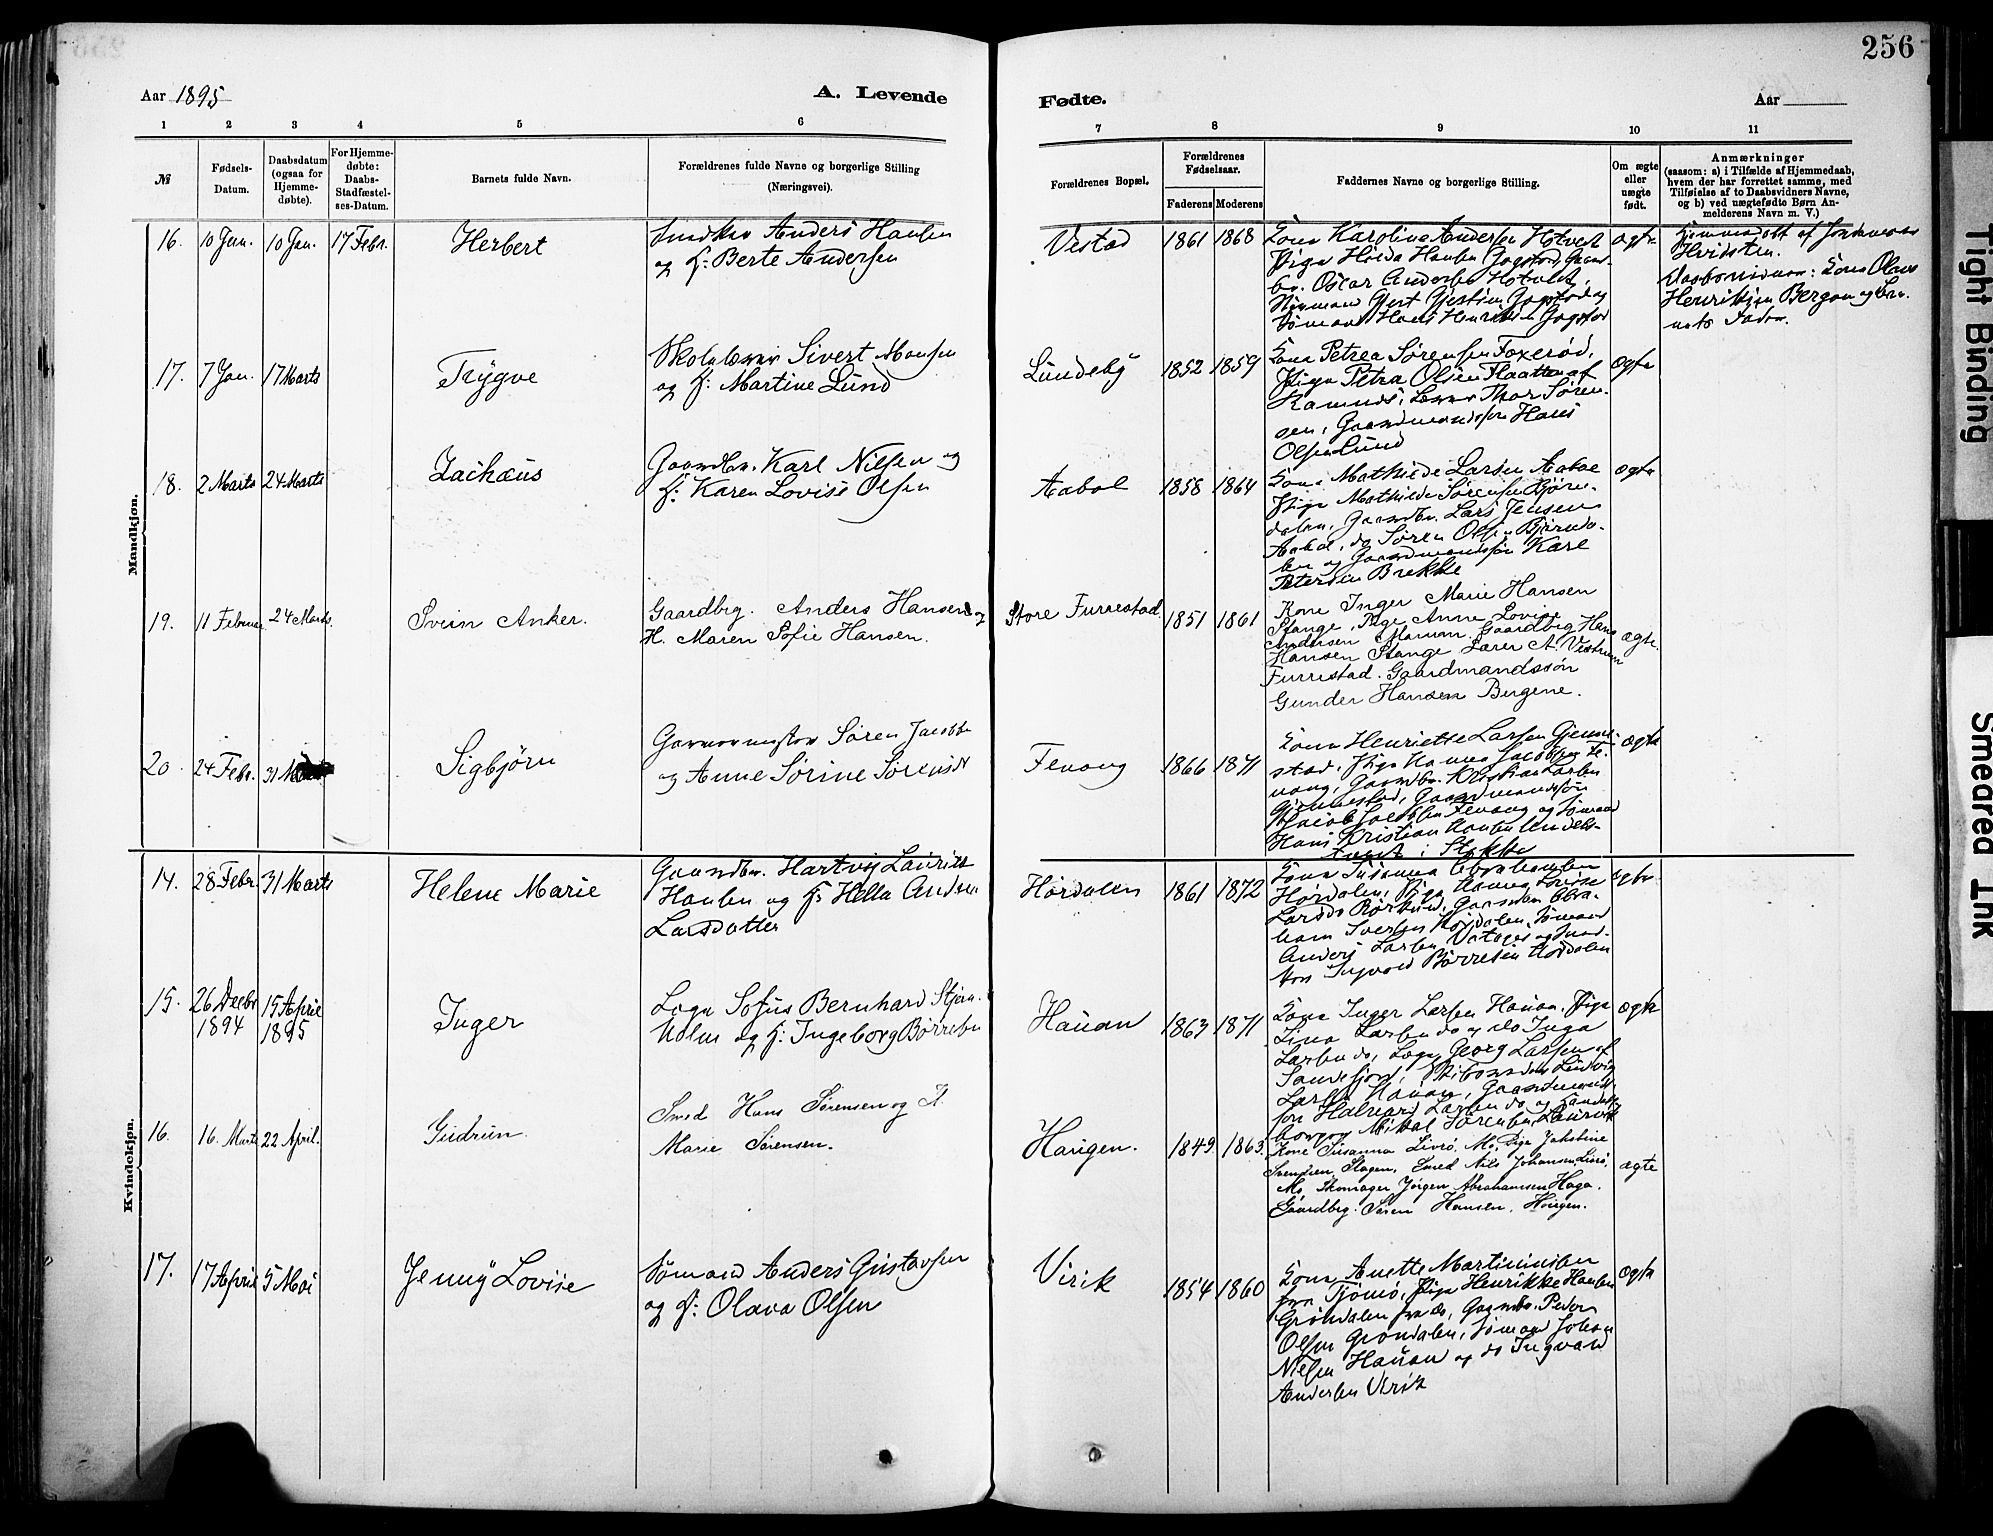 256
Aar 1895
A. Levende
Fødte.
Aar
1 2 3 4 5 6 7 8 9 10 11
№
Fødsels-
Datum.
Daabsdatum
(ogsaa for
Hjemme-
døbte).
For Hjemme-
døbte:
Daabs-
Stadfæstel-
ses-Datum.
Barnets fulde Navn.
Forældrenes fulde Navne og borgerlige Stilling
(Næringsvei).
Forældrenes Bopæl.
Forældrenes
Fødselsaar.
Faderens Moderens
Faddernes Navne og borgerlige Stilling.
Om ægte
eller
uægte
født.
Anmærkninger
(saasom: a) i Tilfælde af Hjemmedaab,
hvem der har forrettet samme, med
Tilføielse af to Daabsvidners Navne,
og b) ved uægtefødte Børn An-
melderens Navn m. V.)
Mandkjøn.
16. 10 Jan. 10 Jan. 17 Febr. Herbert
Snedker Anders Hansen
og H: Berte Andersen
Vestad 1861 1868
Kone Karoline Andersen Hotvedt
Pige Hilda Hansen Gogstad, Gaard-
br. Oscar Andersen Hotvedt,
Gjestin Gogstad og
Sømand Hans Henriksen Gogstad
ægte
Hjemmedøbt af Jordmoder
Hvidsten.
Daabsvidner: Kone Olava
Henriksen Bergan og Bar-
nets Fader.
17. 7 Jan. 17 Marts Trygve
Skolelærer Sivert Monsen
og H: Martine Lund
Lundeby 1852 1859
Kone Petrea Sørensen Foxerød,
Pige Petra Olsen Flaatten af
Ramnes, Lærer Thor Søren-
sen, Gaardmandssøn Hans
Olsen Lund
ægte
18. 2 Marts 24 Marts Zachæus
Gaardbr. Karl Nilsen og
H: Karen Lovise Olsen
Aabol 1858 1864
Kone Mathilde Larsen Aabol
Pige Mathilde Sørensen Bjørn-
dalen, Gaardbr. Lars Jensen
Aabol, do Søren Olsen Bjørnda-
len og Gaardmandssøn Karl
Petersen Brekke
ægte
19. 11 Februar 24 Marts. Svein Anker.
Gaardbrg. Anders Hansen og
H. Maren Sofie Hansen.
Store Furrestad. 1851 1861
Kone Inger Marie Hansen
Stange, Pige Anne Lovise
Andersen Gaardbrg. Hans
Hansen Stange Lærer A. Vestrum
Furrestad. Gaardmandssön
Gunder Hansen Bergene.
ægte.
20. 24 Febr. 31 Sigbjørn
Garvermester Søren Jacobsen
og Anne Sørine Sørensdt
Fevang 1866 1871
Kone Henriette Larsen Gjenne-
stad, Pige Hanna Jacobsen Fe-
vang, Gaardbr. Kristian Larsen
Gjennestad, Gaardmandssøn
Jacob Jacobsen Fevang og Sømand
Hans Kristian Hansen
i Stokke
ægte
Kvindekjøn.
14. 28 Febr. 31 Marts Helene Marie
Gaardbr. Hartvig Lauritz
Hansen og H: Hella Andrea
Larsdatter
Hørdalen 1861 1872
Kone Susanna Abrahamsen
Hørdalen, Pige Hanna Lovise
Larsdt Gaardbr. Abra-
ham Iversen Hørdalen, Sømand
Anders Larsen og Sned-
ker Ingvald Børresen Hørdalen
ægte
15. 26 Decbr 1894 15 April 1895 Inger
Loge Sofus Bernhard Stjern-
holm og H: Ingeborg Børresen
Hauan 1863 1871
Kone Inger Larsen Hauan. Pige
Tina Larsen do og do Inga
Larsen do, Loge Georg Larsen af
Sandefjord, Ludvig
Larsen Hauan, Gaardmands-
søn Halvard Larsen do og
Mikal Sørensen
ægte
16. 16. Marts 22 April. Gudrun.
Smed Hans Sørensen og H.
Marie Sørensen.
Haugen. 1849 1863.
Kone Susanna Livrö, Mö, Pige Jakobine
Svendsen, Slagen, Smed Nils Johansen Livrö,
Mö, Skomager Jörgen Abrahamsen Haga.
Gaardbrg. Sören Hansen, Haugen.
ægte
17. 17 April 5 Mai Jenny Lovise
Sømand Anders Gustavsen
og H: Olava Olsen
Virik 1854 1860
Kone Anette Martinnisen
fra Tjømø, Pige Henrikke Hansen
Grøndalen Gaardbr. Peder
Olsen Grøndalen, Sømand Johan
Nielsen Hauan og do Ingvald
Andersen Virik
ægte
Tight Binding
Smeared Ink